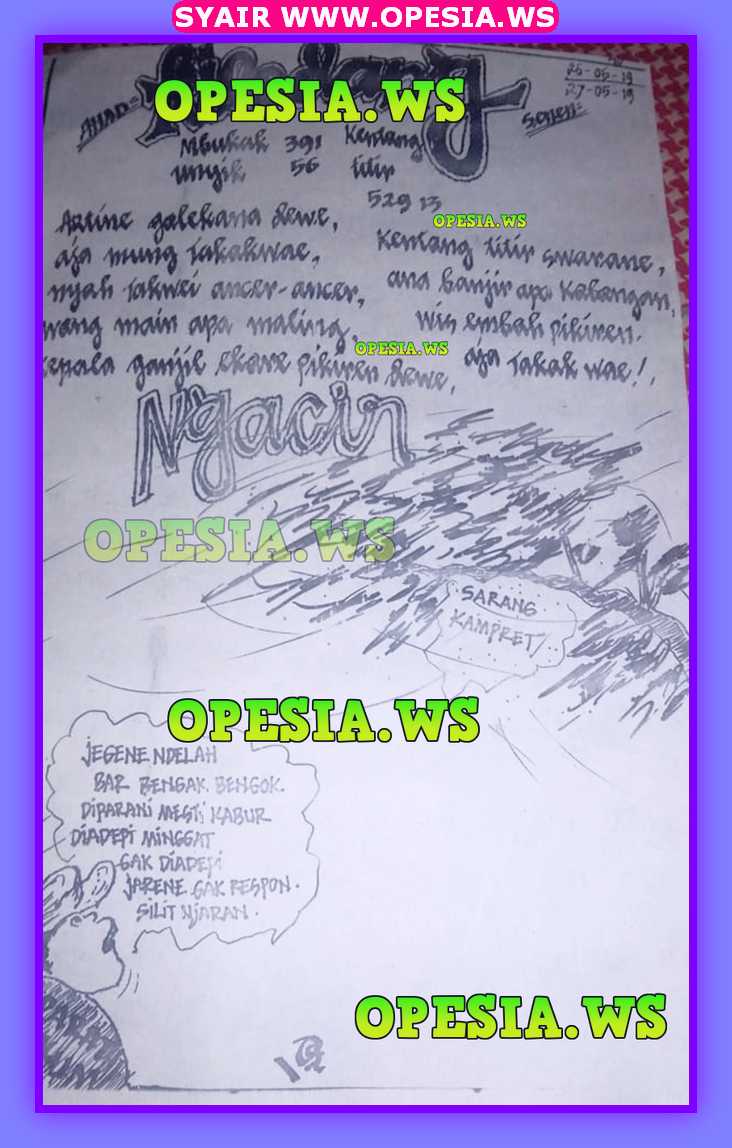 SYAIR WWW.OPESIA.WS
26-05-19
27-05-19
OPESIA.WS
AHAD=
SENEN=
Mbukak 391 Kentang
unyik 56 titir
529 13
OPESIA.WS
Artine golekana dewe,
aja mung takakwae,
Kentang titir swarane,
nyah takwei ancer-ancer,
ana banjir apa Kobongan,
wong main apa maling,
Wis embah pikiren.
OPESIA.WS
kepala ganjil ekore pikiren dewe,
aja takak wae!,
Ngacir
OPESIA.WS
SARANG
KAMPRET
OPESIA.WS
JEGENE NDELAH
BAR BENGAK. BENGOK.
DIPARANI MESTI KABUR
DIADEPI MINGGAT
GAK DIADEPI
JARENE GAK RESPON.
SILIT NJARAN.
OPESIA.WS